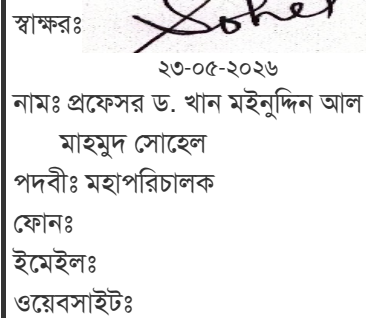 স্বাক্ষরঃ Sohel
২৩-০৫-২০২৬
নামঃ প্রফেসর ড. খান মইনুদ্দিন আল
মাহমুদ সোহেল
পদবীঃ মহাপরিচালক
ফোনঃ
ইমেইলঃ
ওয়েবসাইটঃ